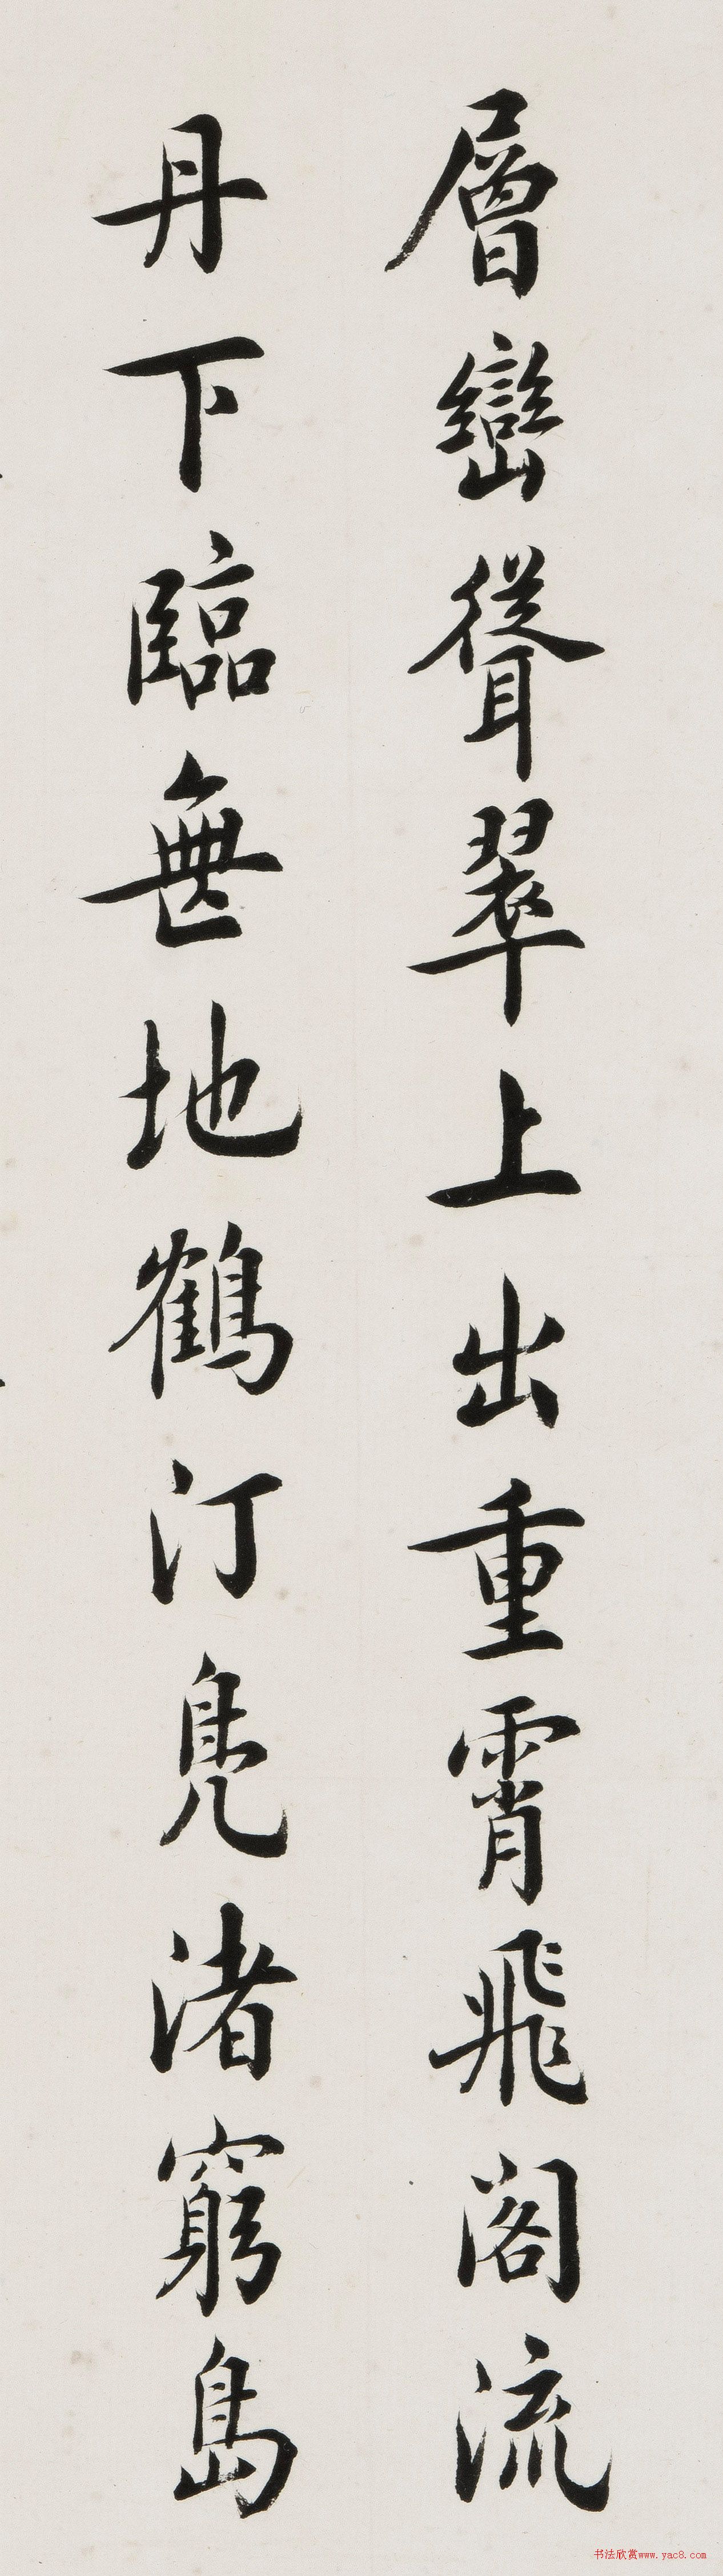 層巒聳翠上出重霄飛阁流
丹下臨無地鶴汀凫渚窮島
书法欣赏www.yac8.com